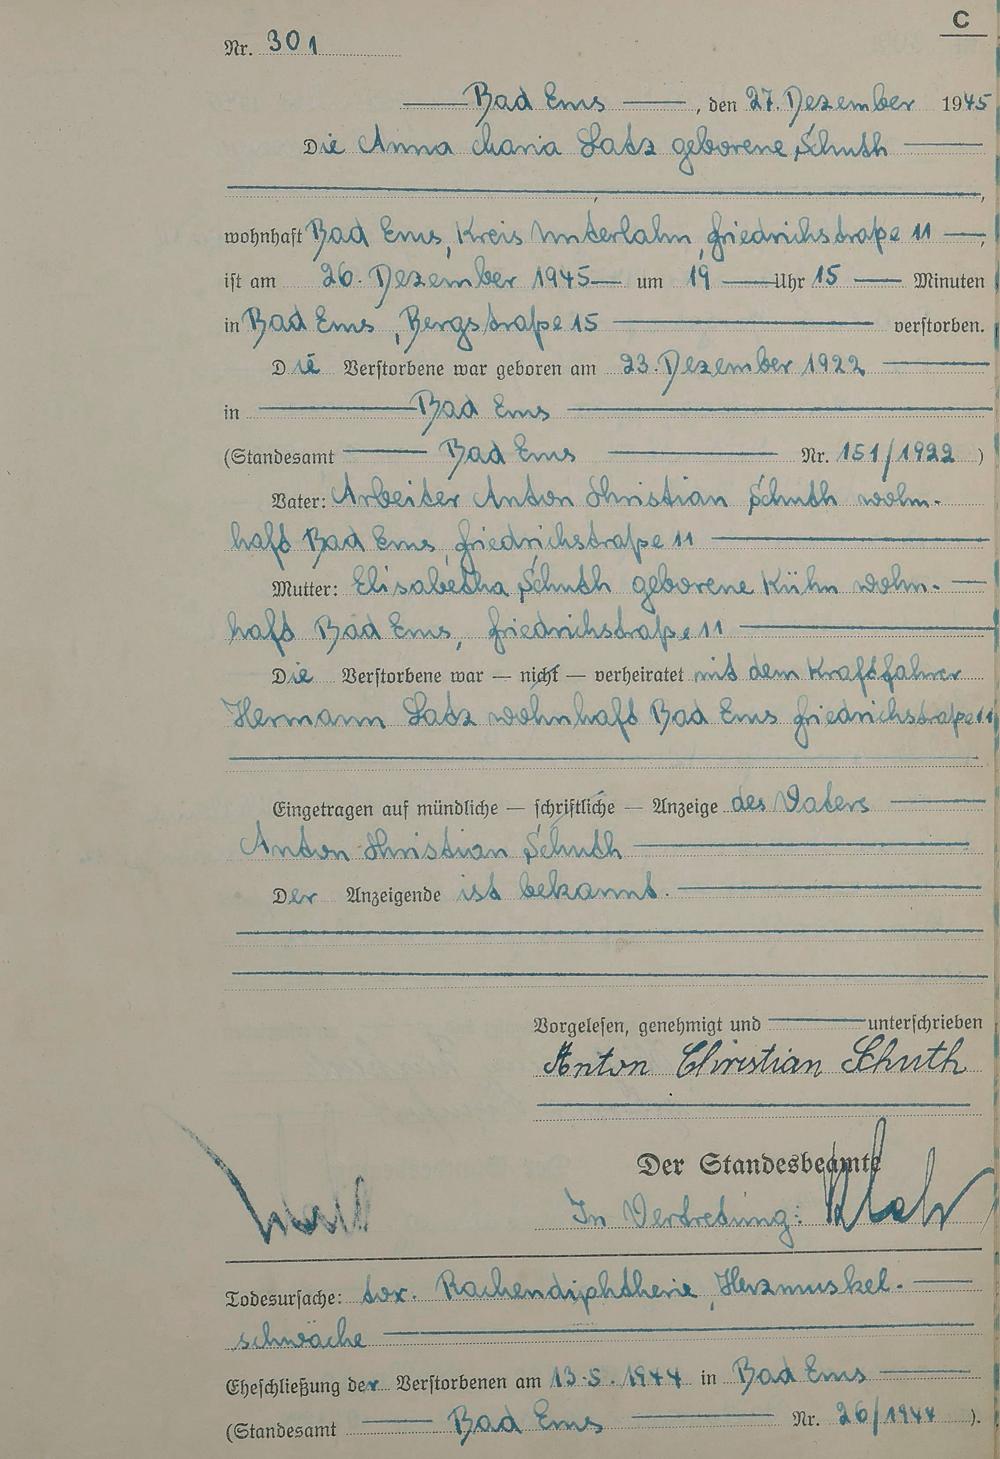 C
Nr. 301
Bad Ems, den 27. Dezember 1945
Die Anna Maria Latz geborene Schuth
wohnhaft Bad Ems, Kreis Unterlahn, Friedrichstraße 11,
ist am 26. Dezember 1945 um 19 Uhr 15 Minuten
in Bad Ems, Bergstraße 15 verstorben.
Die Verstorbene war geboren am 23. Dezember 1922
in Bad Ems
(Standesamt Bad Ems Nr. 151/1922)
Vater: Arbeiter Anton Christian Schuth wohn-
haft Bad Ems, Friedrichstraße 11
Mutter: Elisabetha Schuth geborene Kühn wohn-
haft Bad Ems, Friedrichstraße 11
Die Verstorbene war — nicht — verheiratet mit dem Kraftfahrer
Hermann Latz wohnhaft Bad Ems Friedrichstraße 11
Eingetragen auf mündliche — schriftliche — Anzeige des Vaters
Anton Christian Schuth
Der Anzeigende ist bekannt.
Vorgelesen, genehmigt und unterschrieben
Anton Christian Schuth
Der Standesbeamte
In Vertretung:
Todesursache: tox. Rachendiphtherie, Herzmuskel-
schwäche
Eheschließung der Verstorbenen am 13.5.1944 in Bad Ems
(Standesamt Bad Ems Nr. 26/1944).